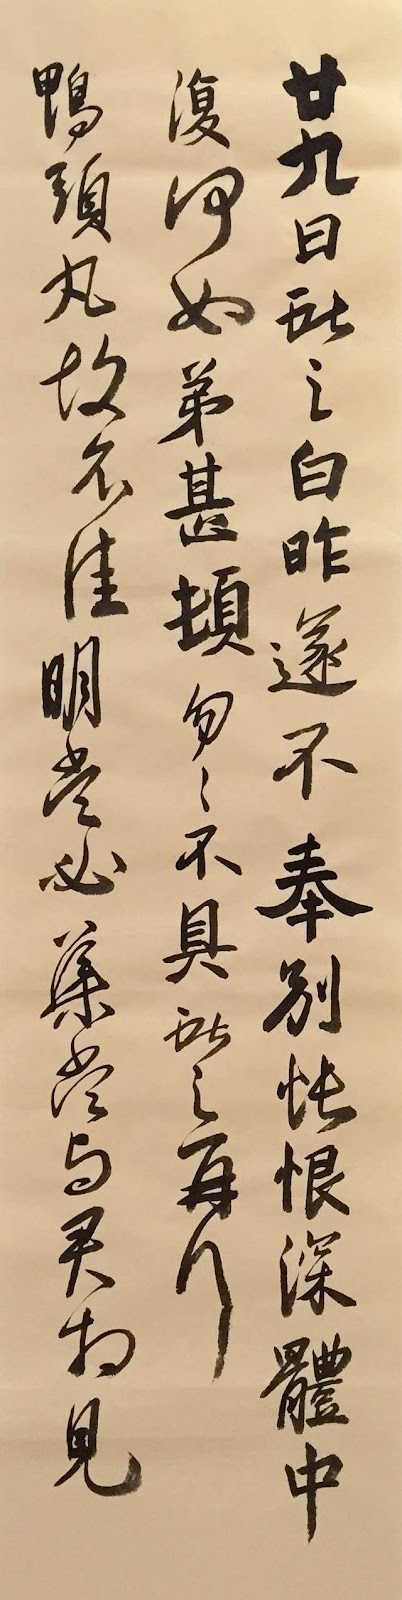 廿九日獻之白昨遂不奉別悵恨深體中
復何如弟甚頓匆〻不具獻之再拜
鴨頭丸故不佳明當必集當与君相見